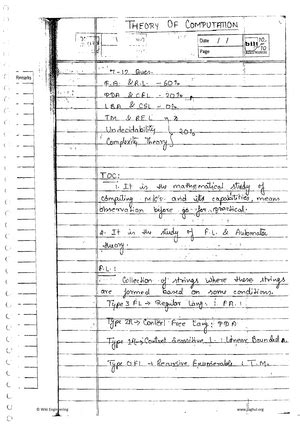 THEORY OF COMPUTATION
Date / /
Page
bilt
Remarks
7-12 Ques.
F.A. & R.L. - 60%
PDA & CFL - 20%
LBA & CSL - 0%
TM & REL
Undecidability } 20%
Complexity Theory
TOC:
1. It is the mathematical study of
computing m/c's and its capabilities, means
observation before go for practical.
2. It is the study of F.L. & Automata
theory.
F.L.:
Collection of strings where these strings
are formed based on some conditions.
Type 3 FL → Regular Lang. : FA.
Type 2FL → Context Free Lang: PDA
Type 1FL → Context Sensitive L : Linear Bounded A.
Type 0 FL → Recursive Enumerable : T.M.
© Wiki Engineering
www.raghul.org